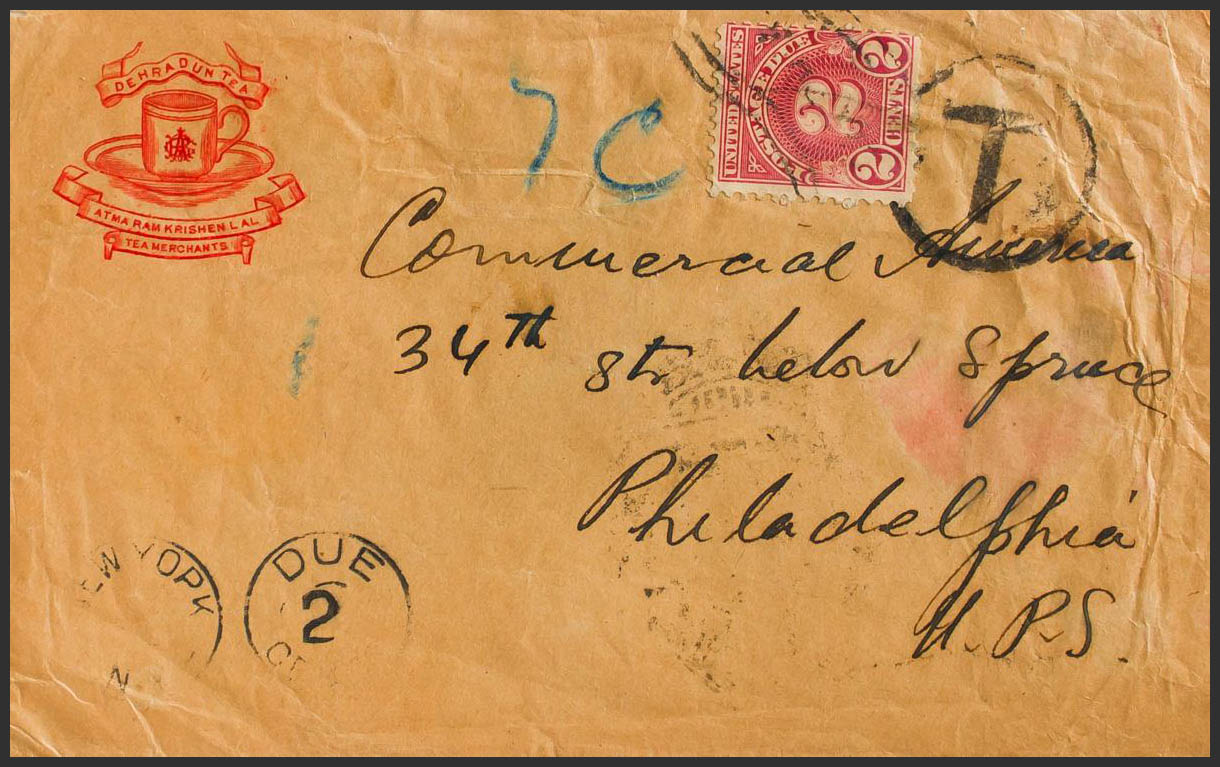 DEHRADUN TEA
ATMA RAM KRISHEN LAL
TEA MERCHANTS
7 C
UNITED STATES
POSTAGE DUE
2
2
2
T
Commercial America
34th Str below Spruce
Philadelphia
U.P.S.
NEW YORK
N
DUE
2